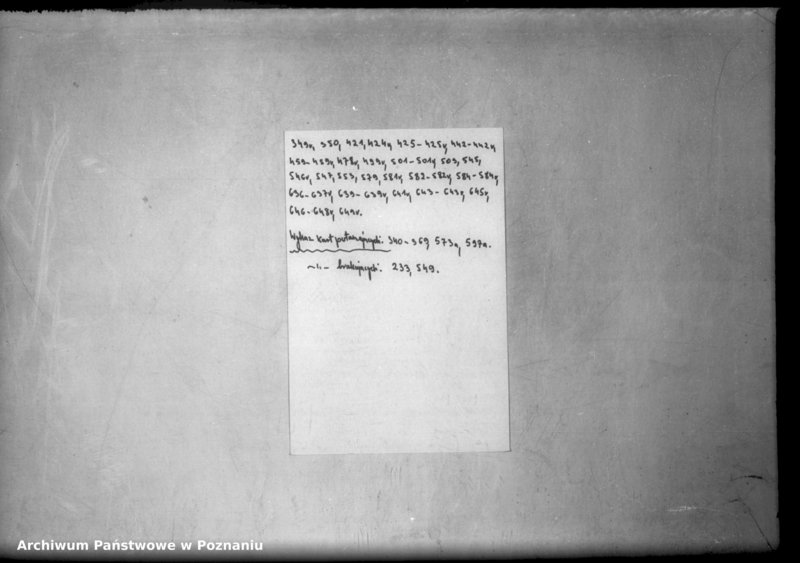 349v, 350, 421, 424v, 425-425v, 442-442v,
459-459v, 478v, 499v, 501-501v, 509, 545,
546v, 547, 553, 579, 581v, 582-582v, 584-584v,
636-637v, 639-639v, 641v, 643-643v, 645v,
646-648v, 649v.
Wykaz kart powtarzających: 340-369, 573a, 597a.
-"- brakujących: 233, 549.
Archiwum Państwowe w Poznaniu